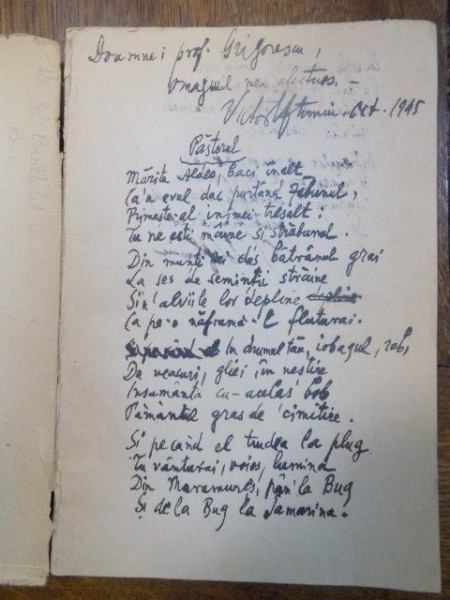 Doamnei prof. Grigorescu,
omagiul meu afectuos. –
Victor Eftimiu. Oct. 1945
Păstorul
Mărite baci înalt
Ca'n evul dac purtând
Primește-al inimei tresalt.
Tu ne ești mâine și străbunul.
Din munți ai dus bătrânul grai
La șes de seminții străine
Și'n alviile lor depline
Ca pe-o năframă-l fluturai.
In drumul tău, iobagul, rob,
De veacuri, gliei, în neștire
Insămânța cu-acelaș bob
Pământul gras de cimitire.
Și pe când el trudea la plug
Tu vânturai, voios, lumina
Din Maramureș, pân'la Bug
Și de la Bug la Samarina.